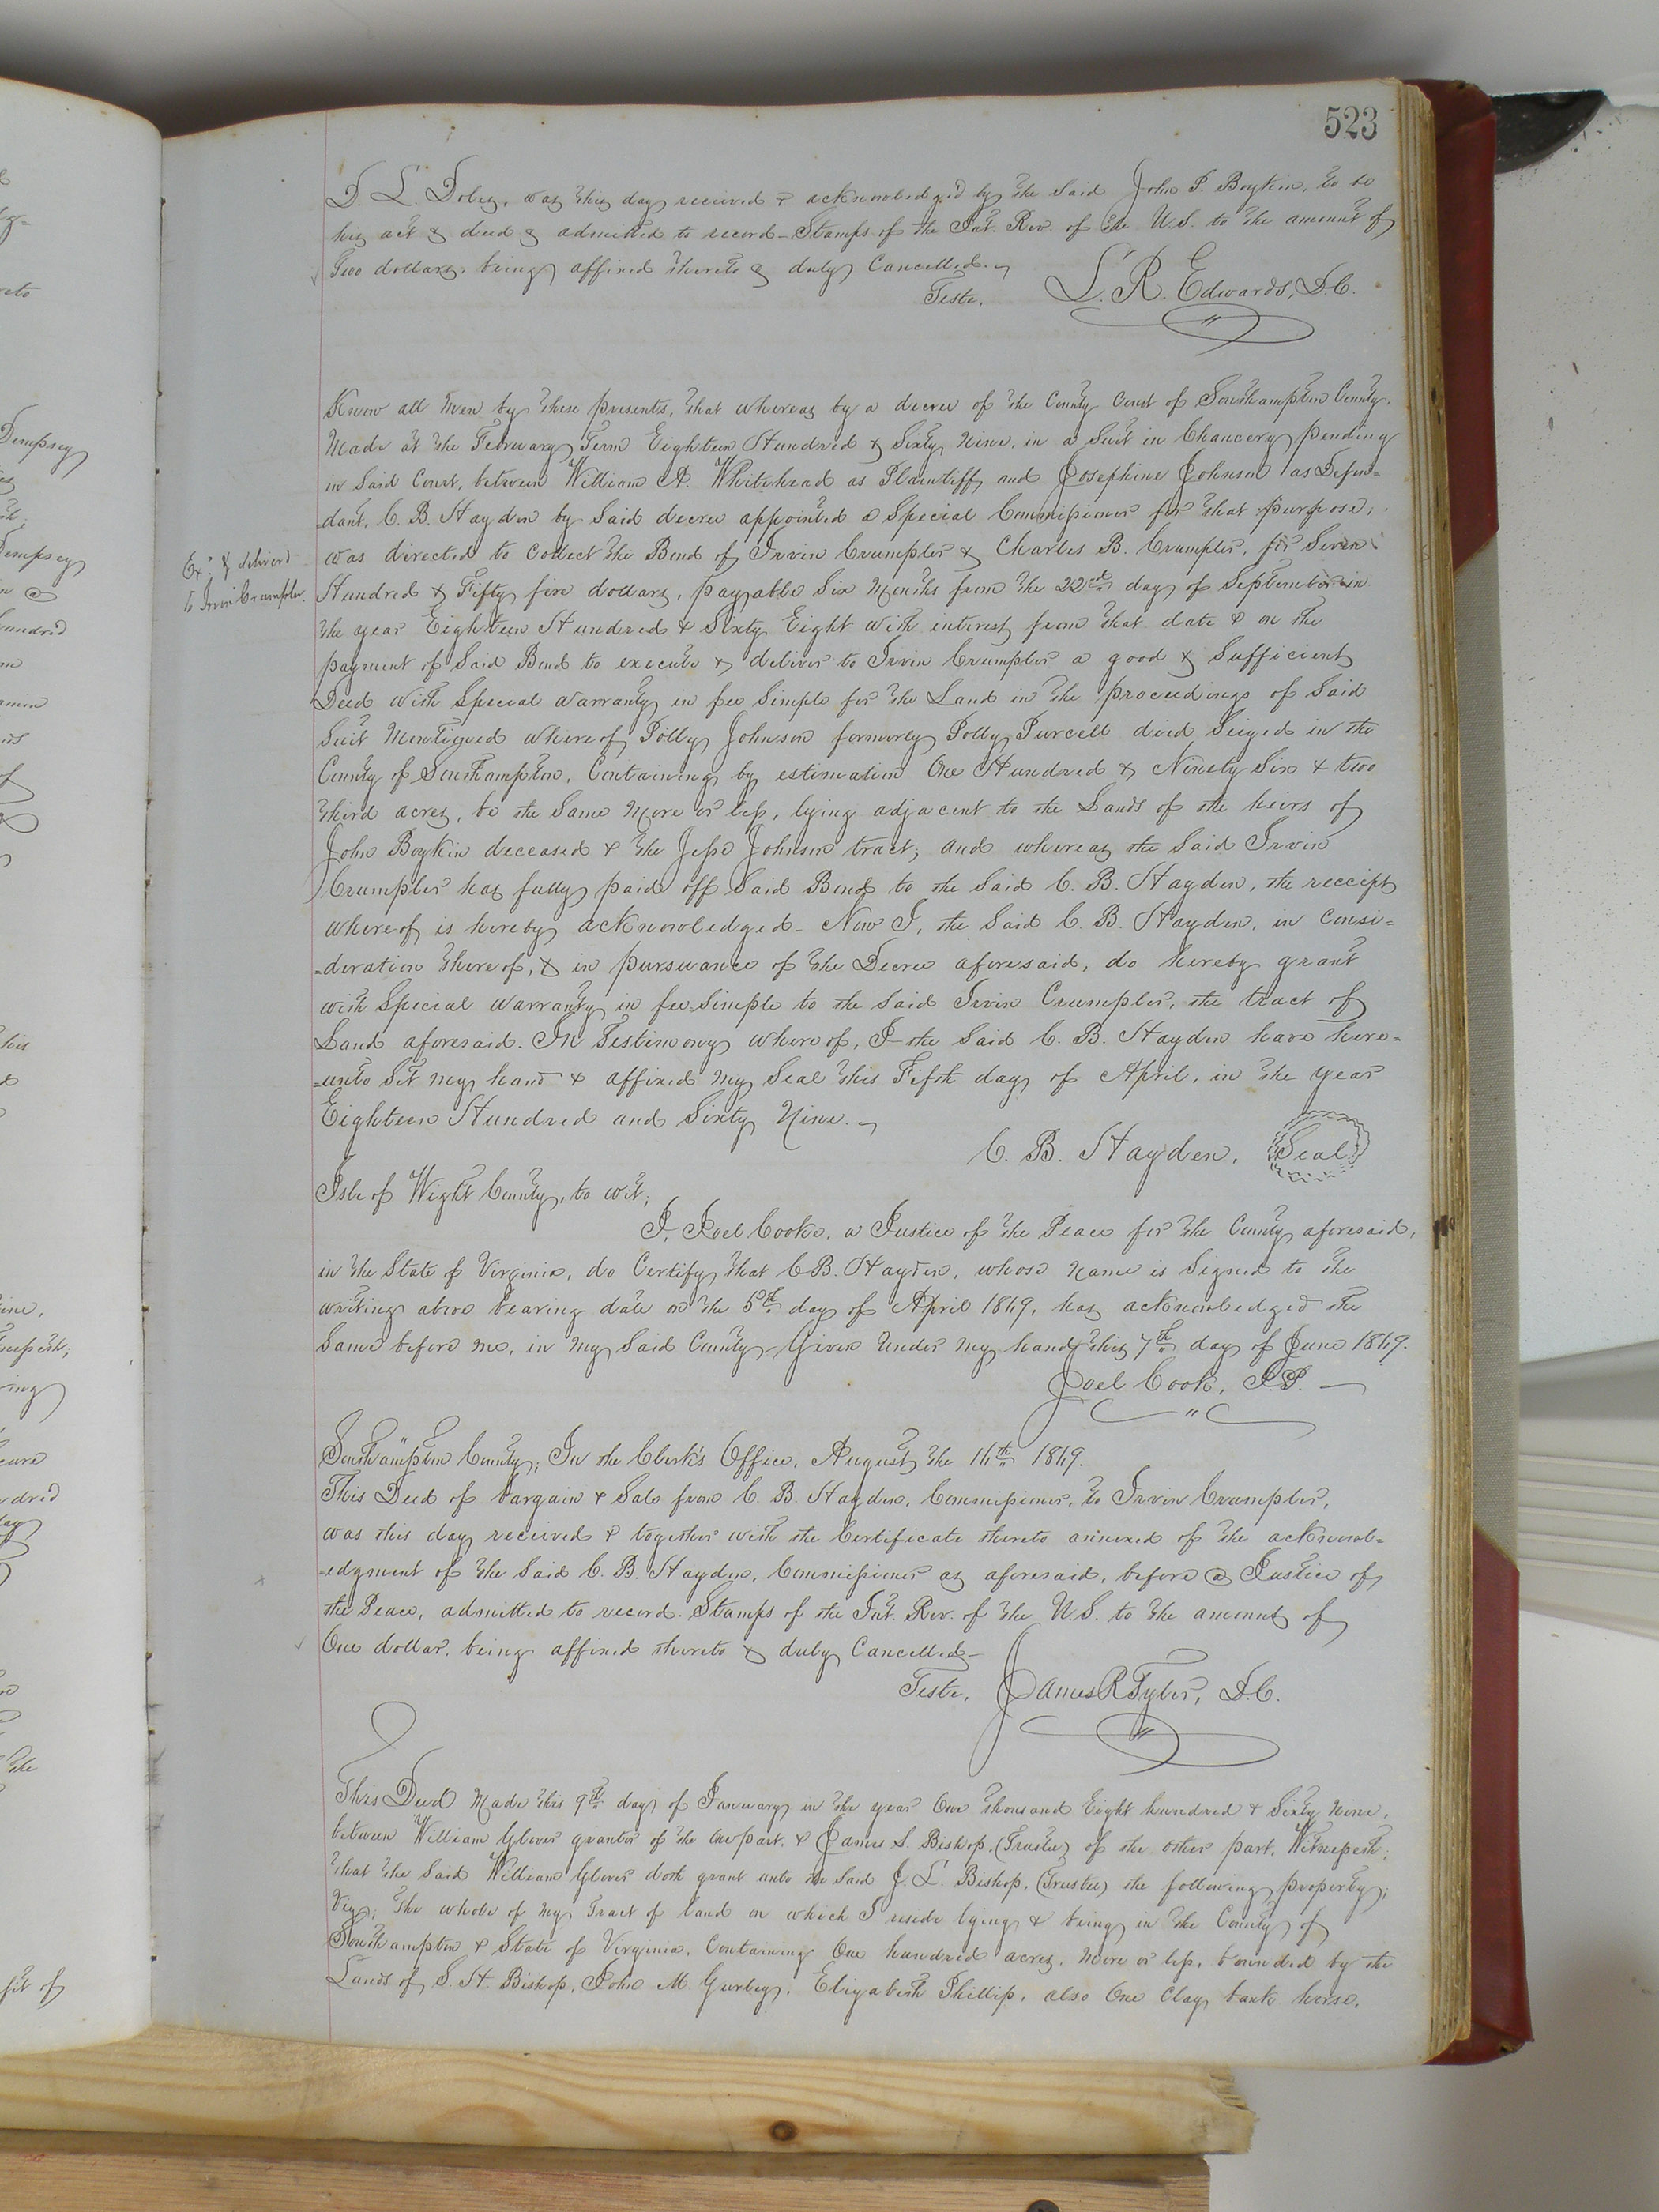 523
D. L. Doles, was this day received & acknowledged by the Said John P. Boykin, to be
his act & deed & admitted to record - Stamps of the Int. Rev. of the U.S. to the amount of
Two dollars, being affixed thereto & duly Cancelled.
Teste, L. R. Edwards, D.C.
Know all Men by these presents, that whereas by a decree of the County Court of Southampton County,
Made at the February Term Eighteen Hundred & Sixty Nine, in a Suit in Chancery pending
in Said Court, between William A. Whitehead as Plaintiff and Josephine Johnson as Defen=
=dant, C. B. Hayden by Said decree appointed a Special Commissioner for that purpose,
was directed to Collect the Bond of Irvin Crumpler & Charles B. Crumpler, for Seven
Ex.d & deliverd
to Irvin Crumpler.
Hundred & Fifty five dollars, payable Six Months from the 22nd day of September in
the year Eighteen Hundred & Sixty Eight with interest from that date & on the
payment of Said Bond to execute & deliver to Irvin Crumpler a good & Sufficient
Deed with Special Warranty in fee Simple for the Land in the proceedings of Said
Suit Mentioned whereof Polly Johnson formerly Polly Purcell died Seized in the
County of Southampton, Containing by estimation One Hundred & Ninety Six & two
third acres, be the Same More or less, lying adjacent to the Lands of the heirs of
John Boykin deceased & the Jesse Johnson tract; and whereas the Said Irvin
Crumpler has fully paid off Said Bond to the Said C. B. Hayden, the receipt
whereof is hereby acknowledged - Now I, the Said C. B. Hayden, in Consi=
=deration thereof, & in pursuance of the Decree aforesaid, do hereby grant
with Special Warranty in fee Simple to the Said Irvin Crumpler, the tract of
Land aforesaid. In Testimony whereof, I the Said C. B. Hayden have here=
=unto Set My hand & affixed My Seal this Fifth day of April, in the year
Eighteen Hundred and Sixty Nine.
C. B. Hayden, Seal
Isle of Wight County, to wit;
I, Joel Cooke, a Justice of the Peace for the County aforesaid,
in the State of Virginia, do Certify that C B. Hayden, whose Name is Signed to the
writing above bearing date on the 5th day of April 1869, has acknowledged the
Same before me, in My Said County - Given Under My hand this 7th day of June 1869.
Joel Cook, J.P.
Southampton County; In the Clerk's Office, August the 16th 1869.
This Deed of bargain & Sale from C. B. Hayden, Commissioner, to Irvin Crumpler,
was this day received & together with the Certificate thereto annexed of the acknowl=
=edgment of the Said C. B. Hayden, Commissioner as aforesaid, before a Justice of
the Peace, admitted to record. Stamps of the Int. Rev. of the U.S. to the amount of
One dollar, being affixed thereto & duly Cancelled -
Teste, James R Tyler, D.C.
This Deed Made this 9th day of January in the year One thousand Eight hundred & Sixty Nine,
between William Glover grantor of the One part, & James L. Bishop, (Trustee) of the other part, Witnesseth;
that the Said William Glover doth grant unto the Said J. L. Bishop, (Trustee) the following property;
Viz; the whole of My Tract of land on which I reside lying & being in the County of
Southampton & State of Virginia, Containing One hundred acres, More or less, bounded by the
Lands of S. H. Bishop, John M Gurley, Elizabeth Phillip, also One Clay bank horse,